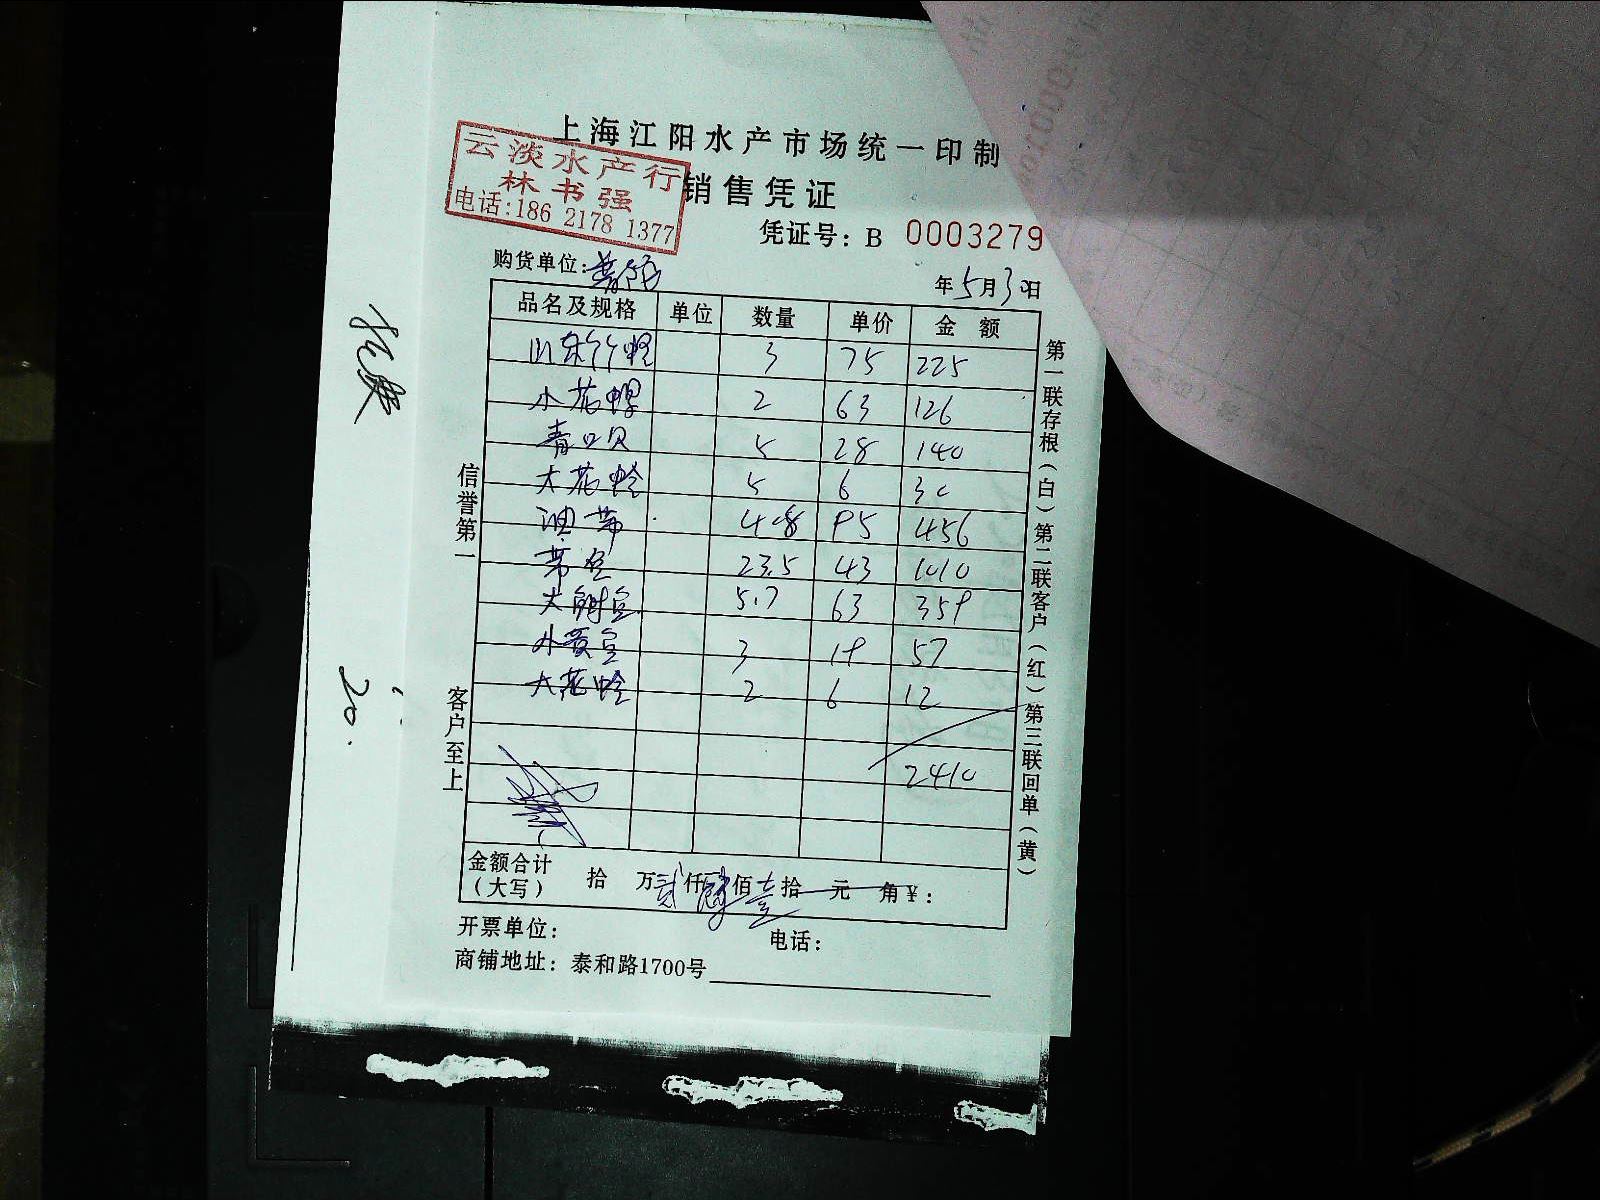 上海江阳水产市场统一印制
云淡水产行
林书强
电话:186 2178 1377
销售凭证
凭证号: B 0003279
购货单位:
年5月30日
品名及规格 单位 数量 单价 金 额
山东竹蛏 3 75 225
小花螺 2 63 126
青口贝 5 28 140
大花蛤 5 6 30
油带 4.8 95 456
带鱼 23.5 43 1010
大鲥鱼 5.7 63 359
小黄鱼 3 19 57
大花蛤 2 6 12
2410
金额合计
(大写) 拾 万贰仟肆佰壹拾 元 角¥:
开票单位: 电话:
商铺地址: 泰和路1700号
信誉第一 客户至上
第一联存根(白)第二联客户(红)第三联回单(黄)
20.